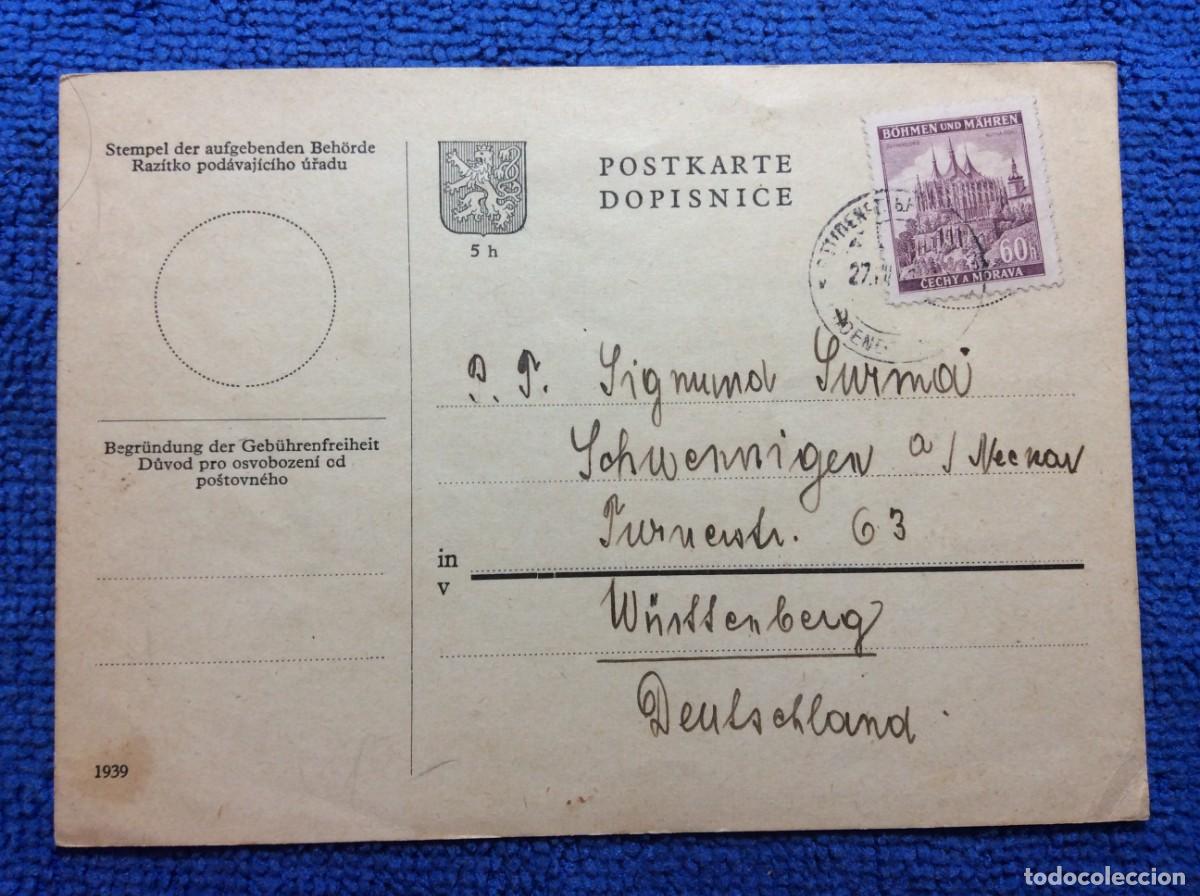 Stempel der aufgebenden Behörde
Razítko podávajícího úřadu
Begründung der Gebührenfreiheit
Důvod pro osvobození od
poštovného
1939
5 h
POSTKARTE
DOPISNICE
BÖHMEN UND MÄHREN
60h
ČECHY A MORAVA
27.
P. T. Sigmund Surma
Schwennigen a/Neckar
Turnerstr. 63
in
v
Württenberg
Deutschland.
todocoleccion